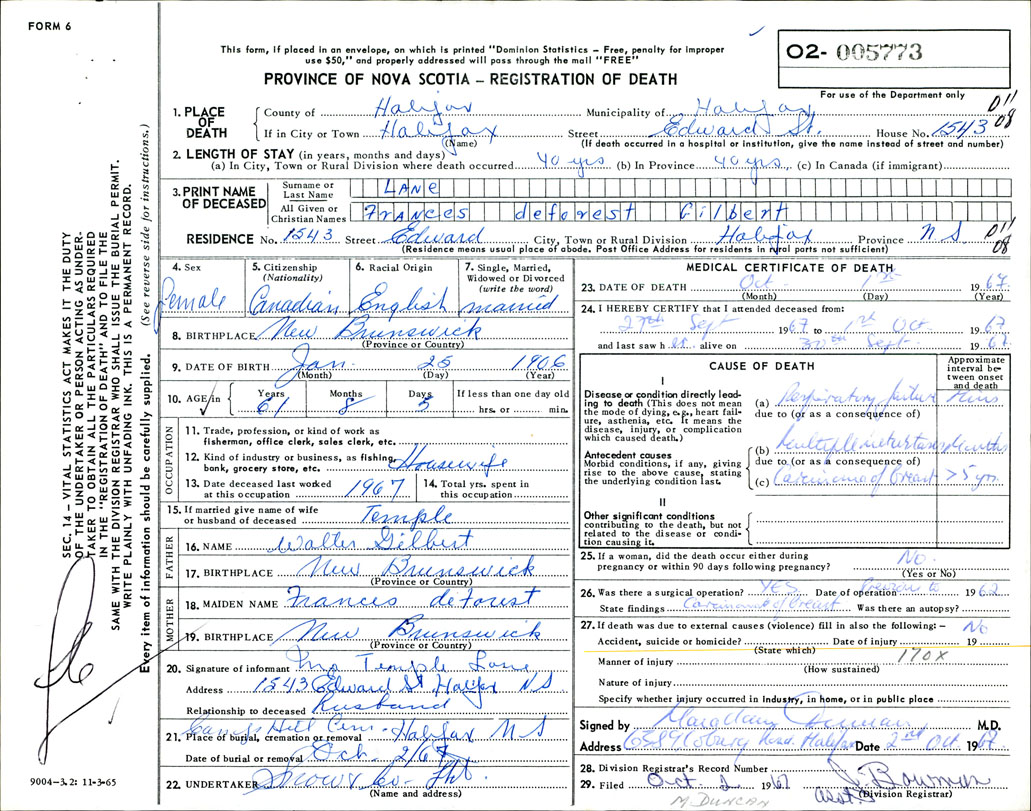 FORM 6
This form, if placed in an envelope, on which is printed "Dominion Statistics – Free, penalty for improper
use $50," and properly addressed will pass through the mail "FREE"
PROVINCE OF NOVA SCOTIA – REGISTRATION OF DEATH
O2- 005773
For use of the Department only
1. PLACE OF DEATH County of Halifax Municipality of Halifax 011
If in City or Town Halifax Street Edward St. House No. 1543 08
(Name) (If death occurred in a hospital or institution, give the name instead of street and number)
2. LENGTH OF STAY (in years, months and days)
(a) In City, Town or Rural Division where death occurred 40 yrs (b) In Province 40 yrs. (c) In Canada (if immigrant)
3. PRINT NAME OF DECEASED Surname or Last Name LANE
All Given or Christian Names Frances deforest Gilbert
RESIDENCE No. 1543 Street Edward City, Town or Rural Division Halifax Province NS 011
(Residence means usual place of abode. Post Office Address for residents in rural parts not sufficient) 08
4. Sex Female
5. Citizenship (Nationality) Canadian
6. Racial Origin English
7. Single, Married, Widowed or Divorced (write the word) married
8. BIRTHPLACE New Brunswick
(Province or Country)
9. DATE OF BIRTH Jan. 25 1906
(Month) (Day) (Year)
10. AGE in Years Months Days If less than one day old
61 8 5 hrs. or min.
OCCUPATION
11. Trade, profession, or kind of work as
fisherman, office clerk, sales clerk, etc.
12. Kind of industry or business, as fishing,
bank, grocery store, etc. Housewife
13. Date deceased last worked at this occupation 1967 14. Total yrs. spent in this occupation
15. If married give name of wife
or husband of deceased Temple
FATHER
16. NAME Walter Gilbert
17. BIRTHPLACE New Brunswick
(Province or Country)
MOTHER
18. MAIDEN NAME Frances deForest
19. BIRTHPLACE New Brunswick
(Province or Country)
20. Signature of informant Temple Lane
Address 1543 Edward St Halifax NS
Relationship to deceased Husband
21. Place of burial, cremation or removal Hill Cem. Halifax NS
Date of burial or removal Oct. 2/67
22. UNDERTAKER Snow Co
(Name and address)
MEDICAL CERTIFICATE OF DEATH
23. DATE OF DEATH Oct. 1st 1967
(Month) (Day) (Year)
24. I HEREBY CERTIFY that I attended deceased from:
27th Sept 1967 to 1st Oct. 1967
and last saw her alive on 30th Sept. 1967
CAUSE OF DEATH
Approximate interval between onset and death
I
Disease or condition directly leading to death (This does not mean the mode of dying, e.g., heart failure, asthenia, etc. It means the disease, injury, or complication which caused death.)
(a) Respiratory failure
due to (or as a consequence of)
Antecedent causes
Morbid conditions, if any, giving rise to the above cause, stating the underlying condition last.
(b) Multiple metastases Months
due to (or as a consequence of)
(c) Carcinoma of Breast >5 yrs.
II
Other significant conditions
contributing to the death, but not related to the disease or condition causing it.
25. If a woman, did the death occur either during
pregnancy or within 90 days following pregnancy? No.
(Yes or No)
26. Was there a surgical operation? YES Date of operation Previous to 1962
State findings Carcinoma of Breast Was there an autopsy?
27. If death was due to external causes (violence) fill in also the following: – No
Accident, suicide or homicide? Date of injury 19
(State which) 170X
Manner of injury
(How sustained)
Nature of injury
Specify whether injury occurred in Industry, in home, or in public place
Signed by M.D.
Address Road, Halifax Date 2nd Oct 1967
28. Division Registrar's Record Number
29. Filed Oct 2 1967 Bowman
Asst. (Division Registrar)
M. DUNCAN
SEC. 14 – VITAL STATISTICS ACT MAKES IT THE DUTY
OF THE UNDERTAKER OR PERSON ACTING AS UNDER-
TAKER TO OBTAIN ALL THE PARTICULARS REQUIRED
IN THE "REGISTRATION OF DEATH" AND TO FILE THE
SAME WITH THE DIVISION REGISTRAR WHO SHALL ISSUE THE BURIAL PERMIT.
WRITE PLAINLY WITH UNFADING INK. THIS IS A PERMANENT RECORD.
Every item of information should be carefully supplied. (See reverse side for instructions.)
9004-3.2: 11-3-65